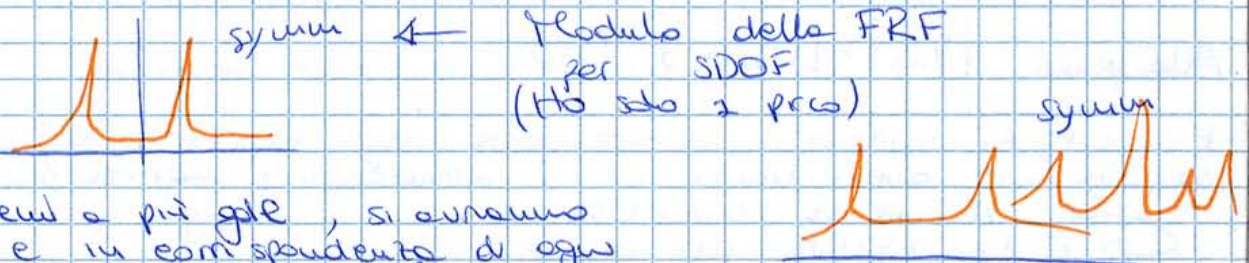 symm ← Modulo della FRF
per SDOF
(Ho solo 1 picco)
symm
a più gdle, si avranno
e in corrispondenza di ogni